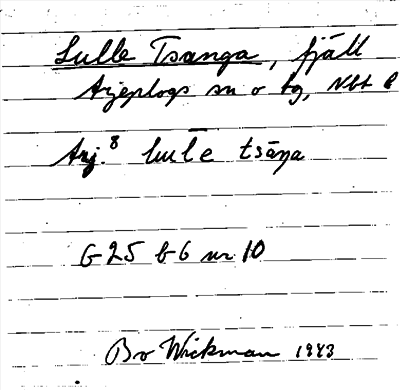 Lulle Tsanga, fjäll
Arjeplogs sn o tg, Nbt l
Arj.8 lūlˈe tsāŋa
G 25 b 6 nr 10
Bo Wickman 1943